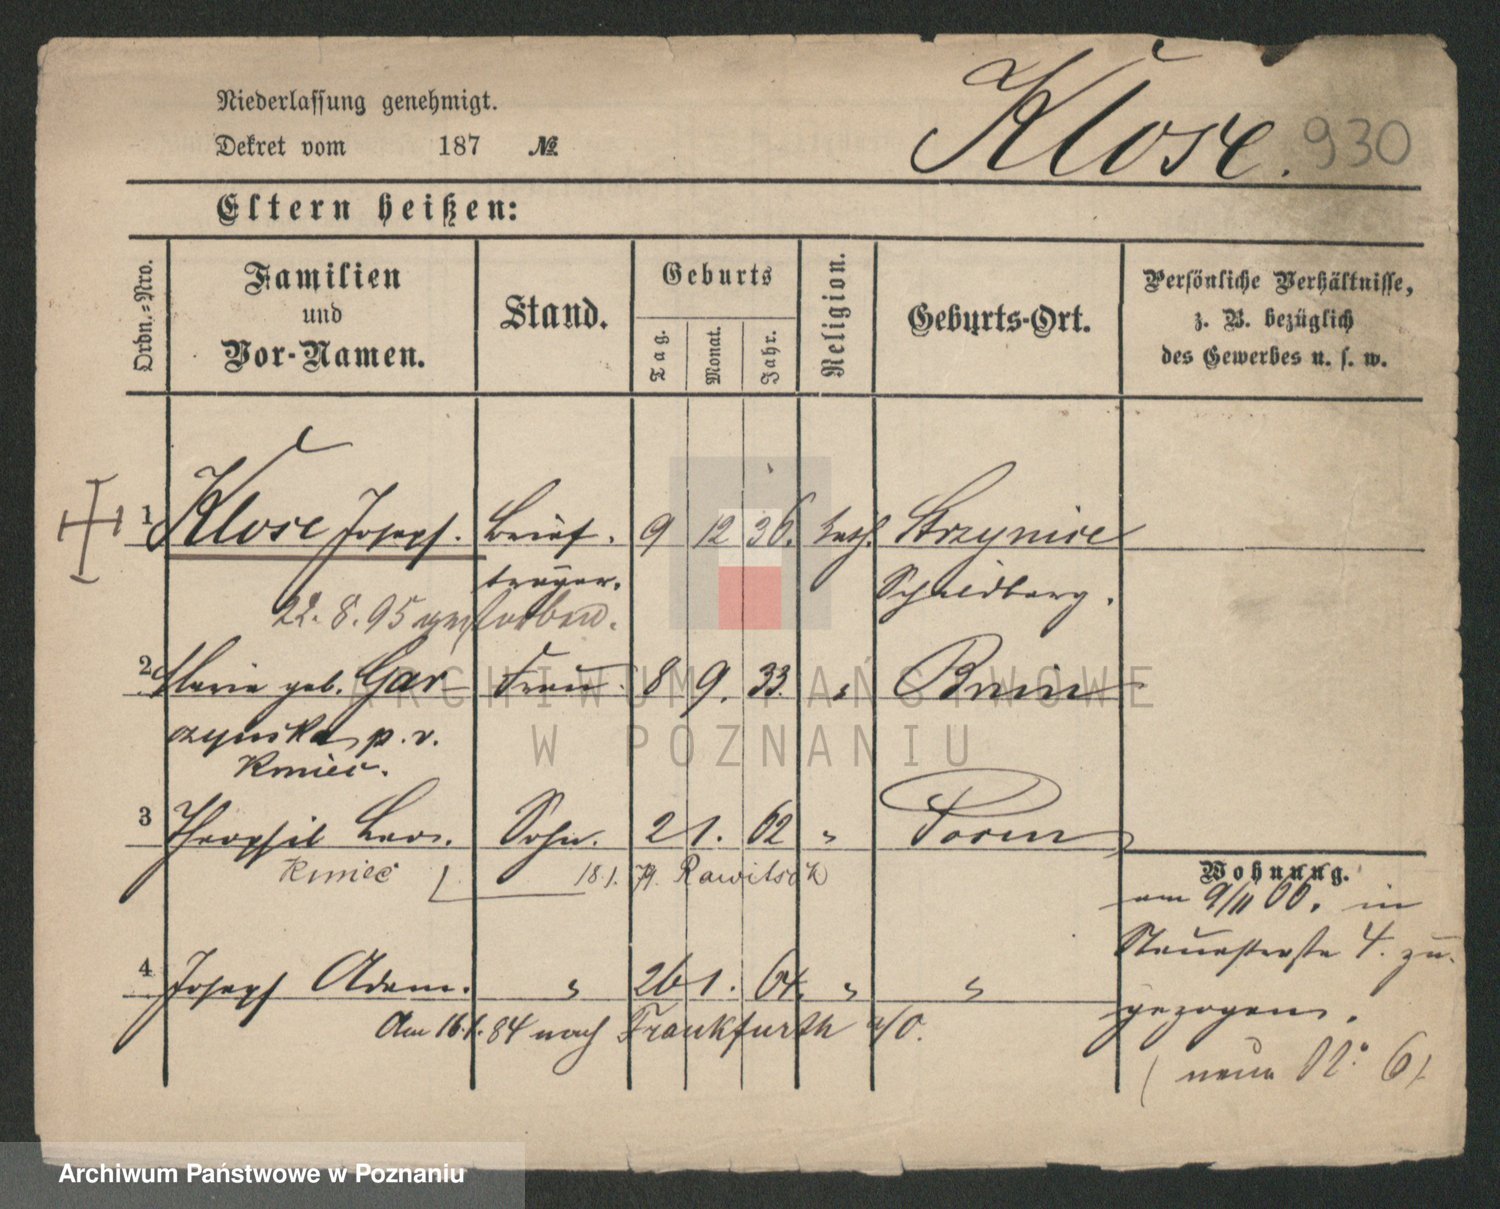 Niederlassung genehmigt.
Dekret vom 187 №
Klose. 930
Eltern heißen:
Ordn.-Nro.
Familien
und
Vor-Namen.
Stand.
Geburts
Tag.
Monat.
Jahr.
Religion.
Geburts-Ort.
Persönliche Verhältnisse,
z. B. bezüglich
des Gewerbes u. s. w.
1 Klose Joseph. Brief- 9 12 36. kath.
träger. Schildberg.
22. 8. 95 gestorben.
2 Marie geb. Gar- Frau 8 9. 33. " Bnin
czynska p. v.
Kmiec.
3 Theophil Leo. Sohn. 2 1. 62 " Posen
Kmiec 18.1. 79. Rawitsch
4 Joseph Adam. " 26 1. 64. " "
Am 16.1.84 nach Frankfurth a/O.
Wohnung.
am 9/11 66. in
4. zu-
gezogen.
(neue N: 6)
ARCHIWUM PAŃSTWOWE
W POZNANIU
Archiwum Państwowe w Poznaniu